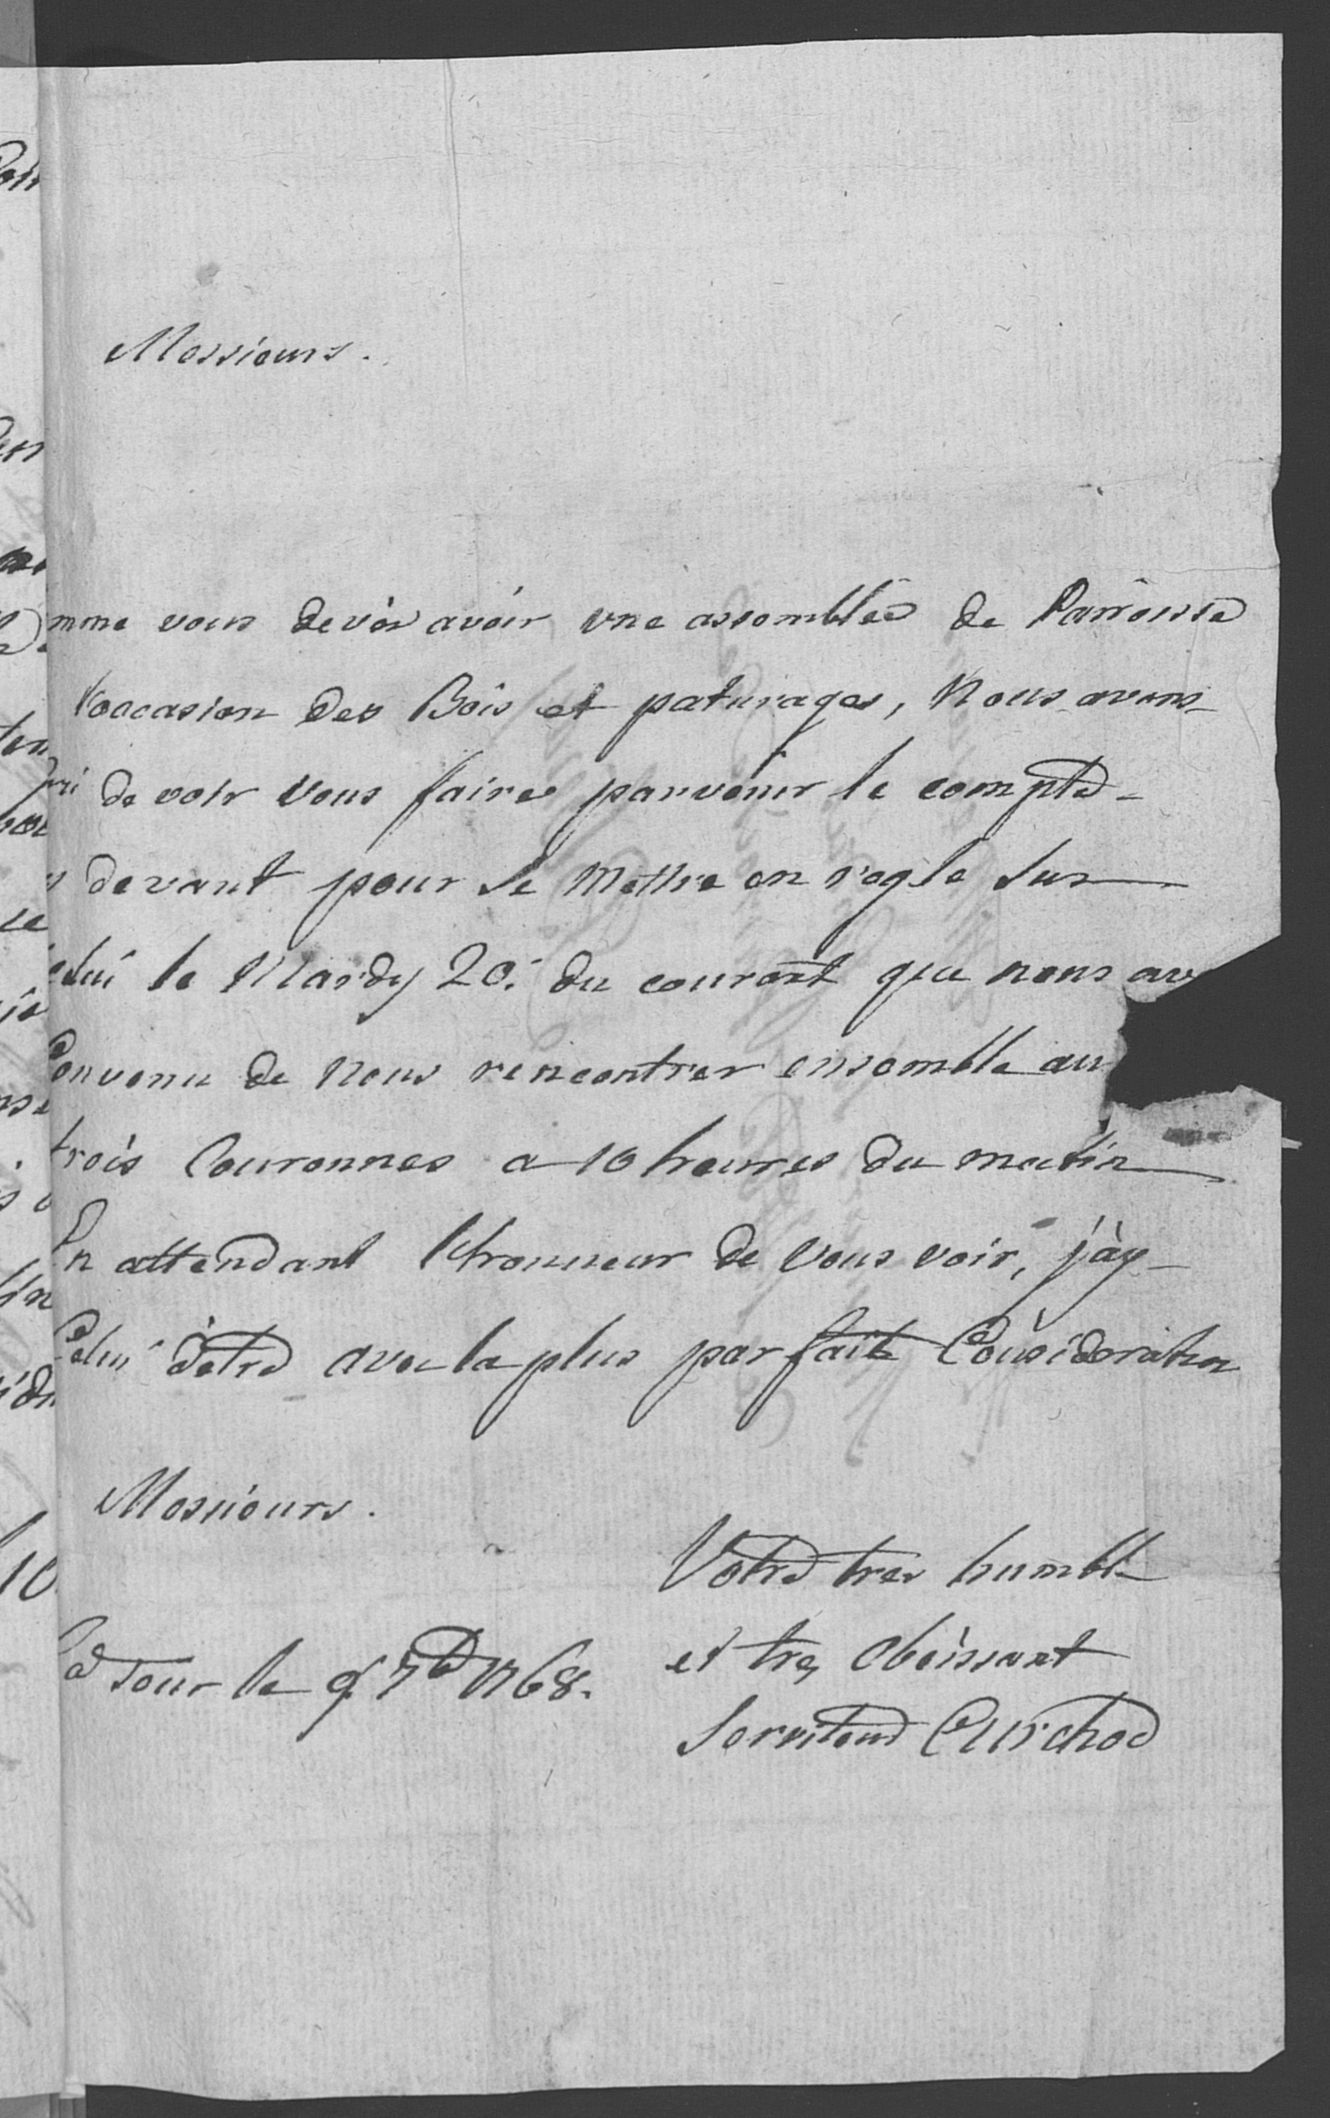 Messieurs.
mme vous devés avoir une assemblée de Parroisse
l'occasion des Bois et paturages, Nous avons
devoir vous faire parvenir le compte
devant pour se mettre en regle sur
celui le Mardy 20. du courant que nous av
Convenu de nous rencontrer ensemble au
trois Couronnes a 10 heures du matin
En attendant l'honneur de vous voir, j'ay
Celui d'etre avec la plus parfaite Consideration
Messieurs.
Votre tres humble
et tres obeissant
La Tour le 9. 7b 1768.
Serviteur Curchod